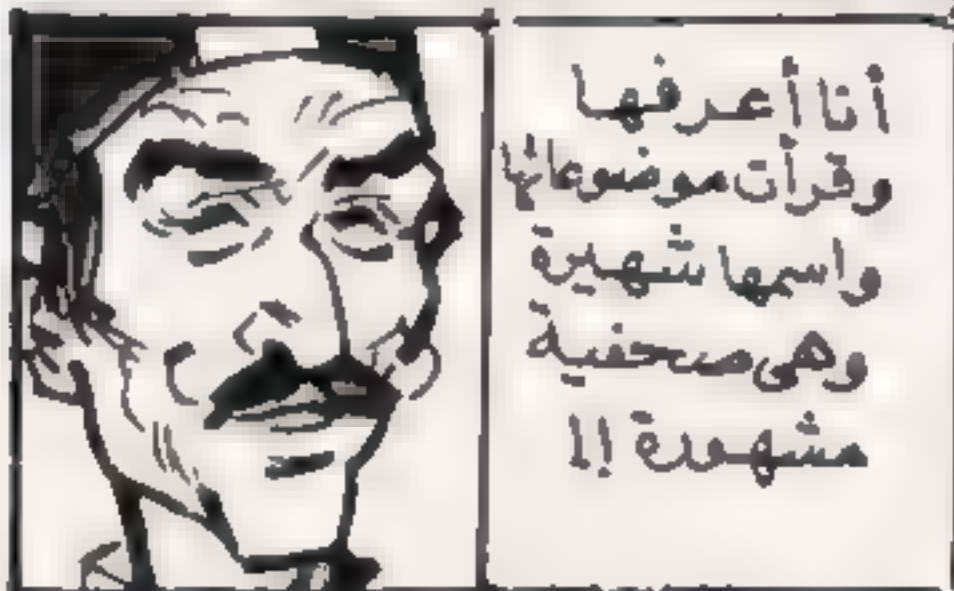 أنا أعرفها
وقرأت موضوعاتها
واسمها شهيرة
وهى صحفية
مشهورة !!